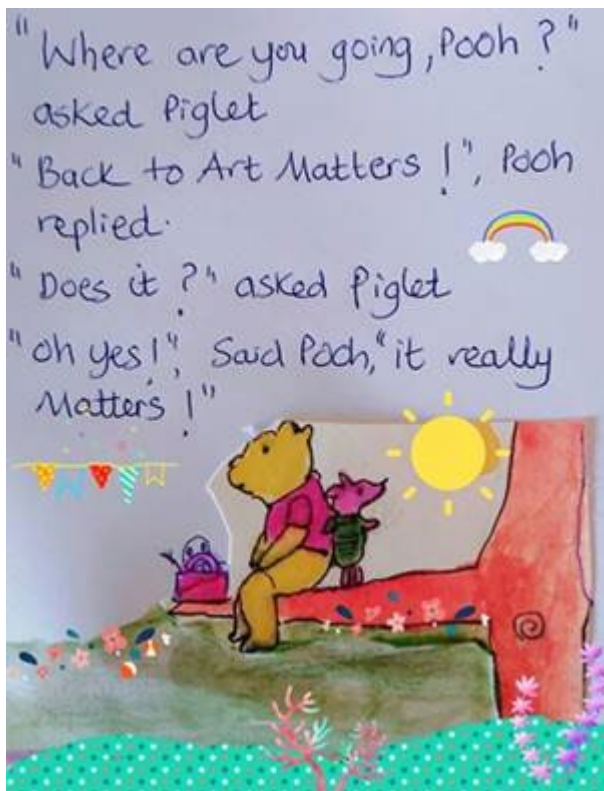 "Where are you going, Pooh?"
asked Piglet
"Back to Art Matters!", Pooh
replied.
"Does it?" asked Piglet
"Oh yes!", Said Pooh, "it really
Matters!"